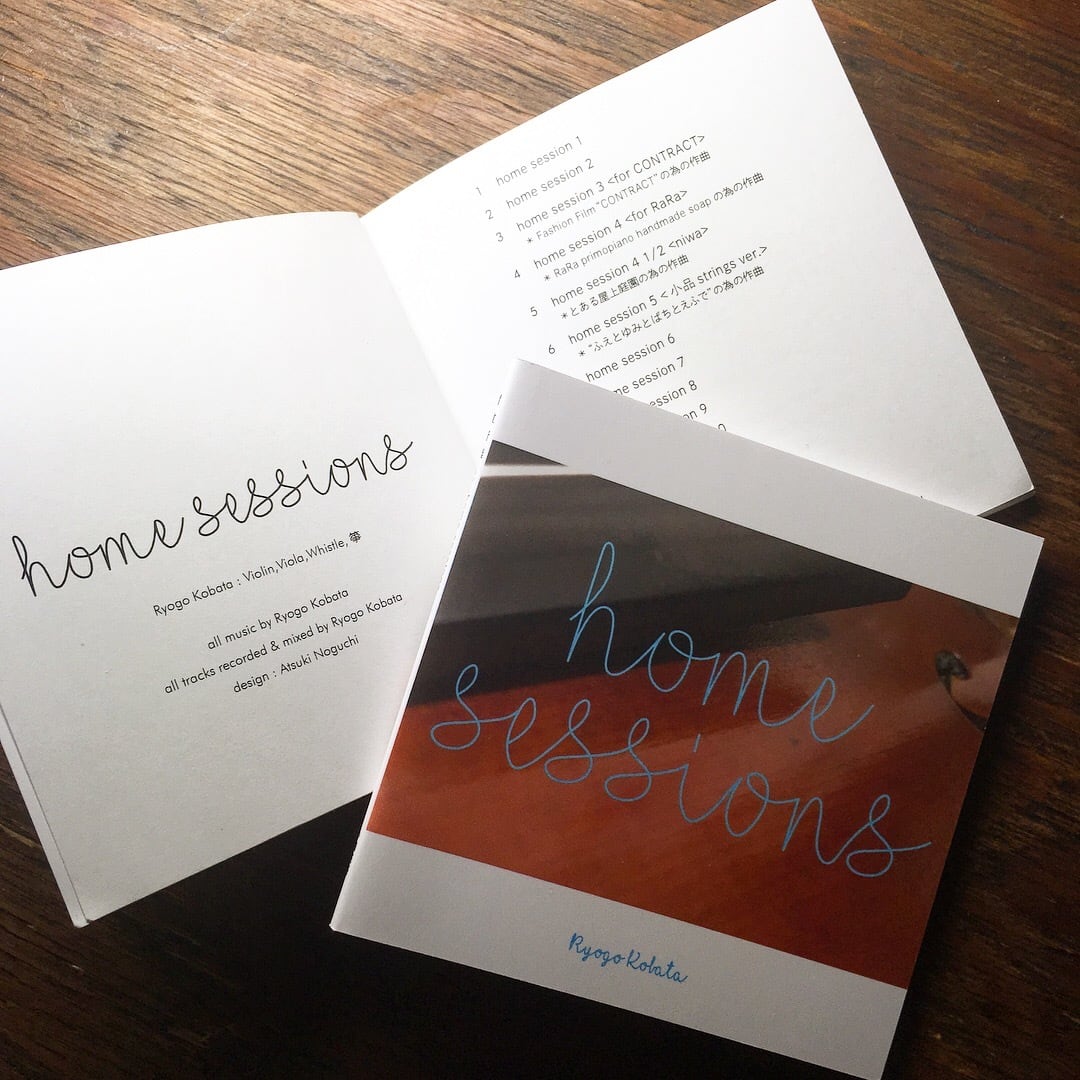 home sessions
Ryogo Kobata : Violin,Viola,Whistle,箏
all music by Ryogo Kobata
all tracks recorded & mixed by Ryogo Kobata
design : Atsuki Noguchi
1 home session 1
2 home session 2
3 home session 3 <for CONTRACT>
* Fashion Film "CONTRACT"の為の作曲
4 home session 4 <for RaRa>
* RaRa primopiano handmade soap の為の作曲
5 home session 4 1/2 <niwa>
*とある屋上庭園の為の作曲
6 home session 5 <小品 strings ver.>
* "ふえとゆみとばちとえふで"の為の作曲
home session 6
me session 7
ession 8
n 9
home
sessions
Ryogo Kobata